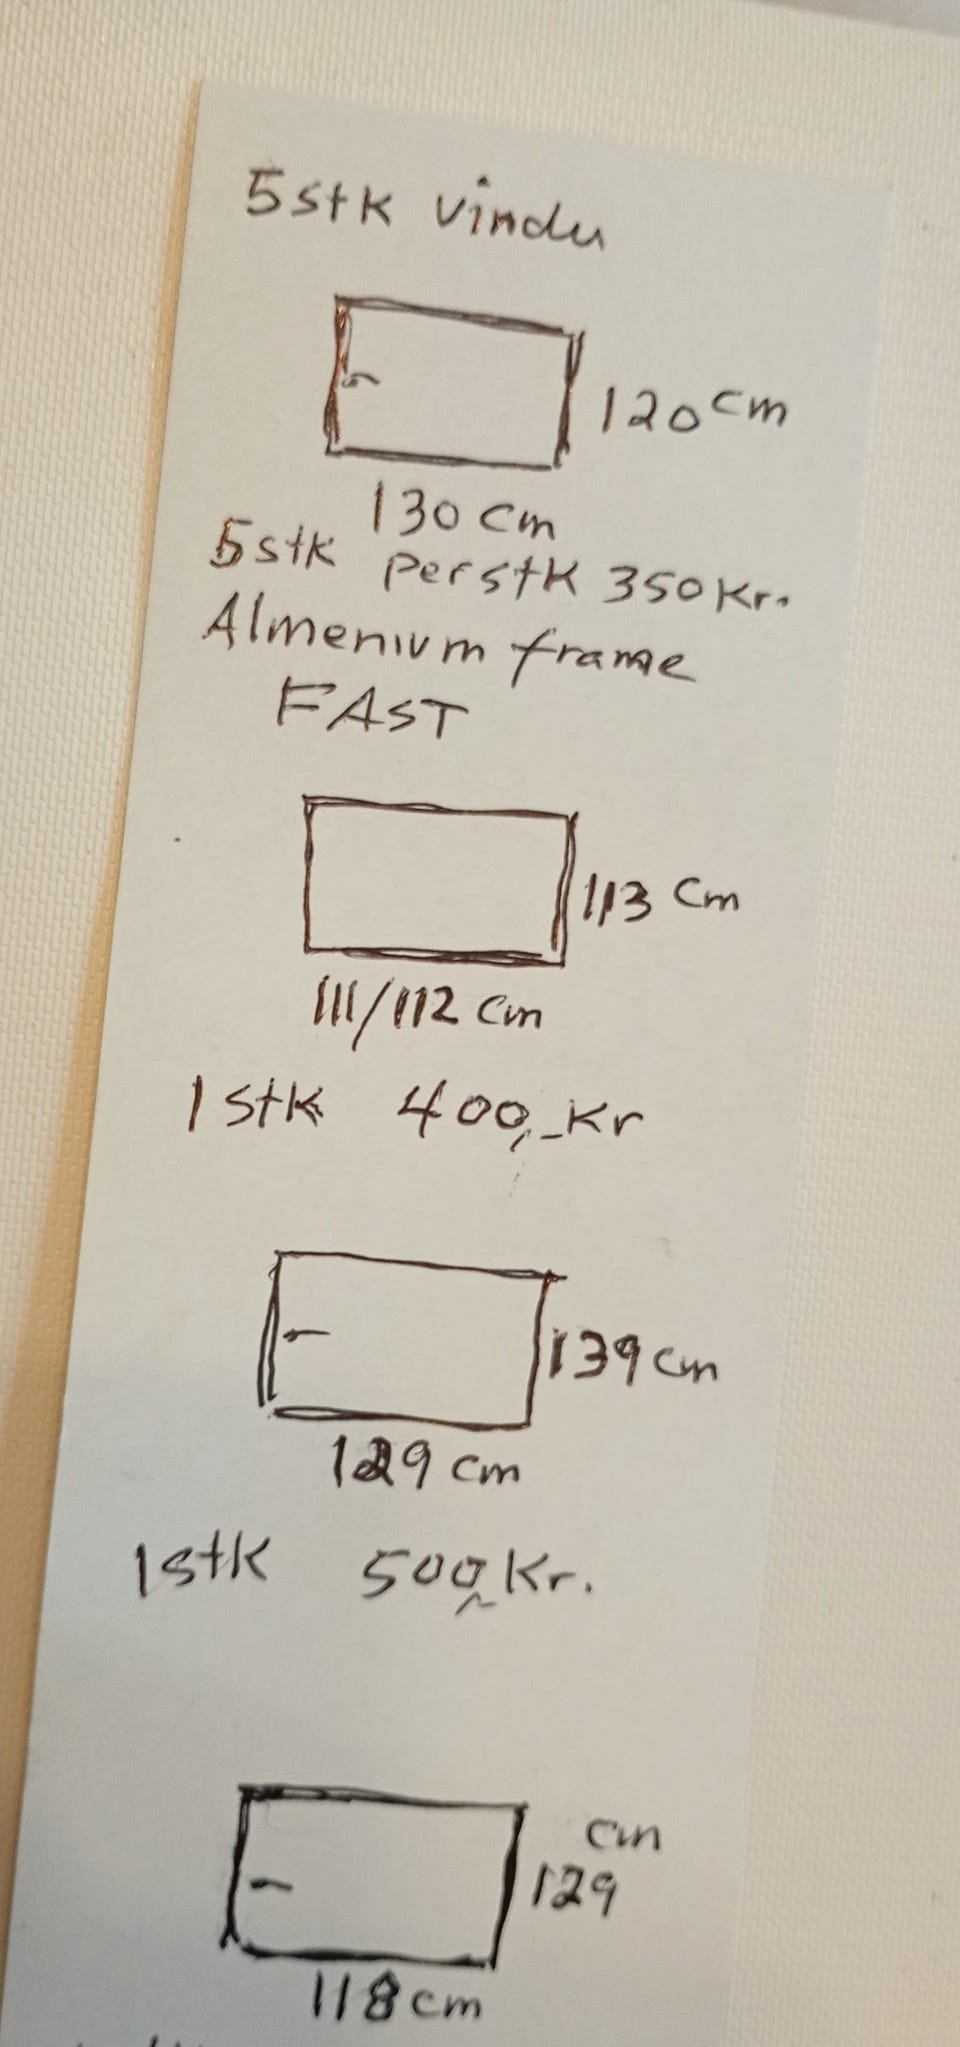 5stk vindu
120 cm
130 cm
5stk per stk 350 Kr.
Almenium frame
FAST
113 cm
111/112 cm
1 stk 400,- Kr
139 cm
129 cm
1stk 500,- Kr.
cm
129
118 cm